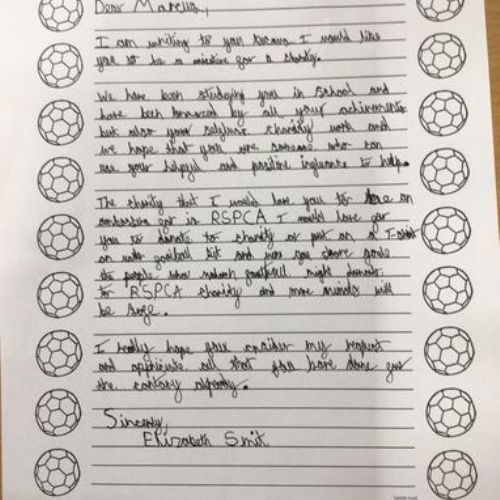 Dear Marcus,
I am writing to you because I would like
you to be a for a charity.
We have been studying you in school and
have been by all your achievements
but also your selfless charity work and
we hope that you are someone who can
use your helpful and positive influence to help.
The charity that I would love you to be an
for is RSPCA I would love for
you to donate to charity or put on a T-shirt
an under football kit and you score goals
the people who watch football might donate
to RSPCA charity and more animals will
be safe.
I really hope you consider my request
and all that you have done for
the already.
Sincerly,
Elizabeth Smit